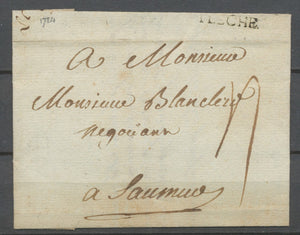 1784
FLECHE
A Monsieur
Monsieur Blancler
negotiant
a Saumur